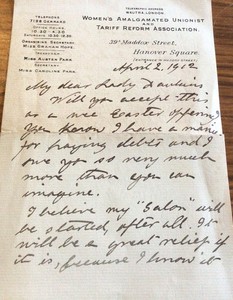 TELEPHONE
GERRARD
OFFICE HOURS
10.30 - 4.30
SATURDAYS 10.30 - 1.30.
ORGANISING SECRETARY.
MISS GRAHAM HOPE.
SECRETARY.
MISS AUSTEN PARK.
MISS CAROLINE PARK.
TELEGRAPHIC ADDRESS
LONDON.
WOMEN'S AMALGAMATED UNIONIST
AND
TARIFF REFORM ASSOCIATION.
39ª Maddox Street,
Hanover Square.
April 2. 1912
My dear Lady
Will you accept this
as a wee Easter offering
You know I have a mania
for paying debts and I
owe you so very much
more than you can
imagine.
I believe my "Salon" will
be started, after all. It
will be a great relief if
it is, because I know it